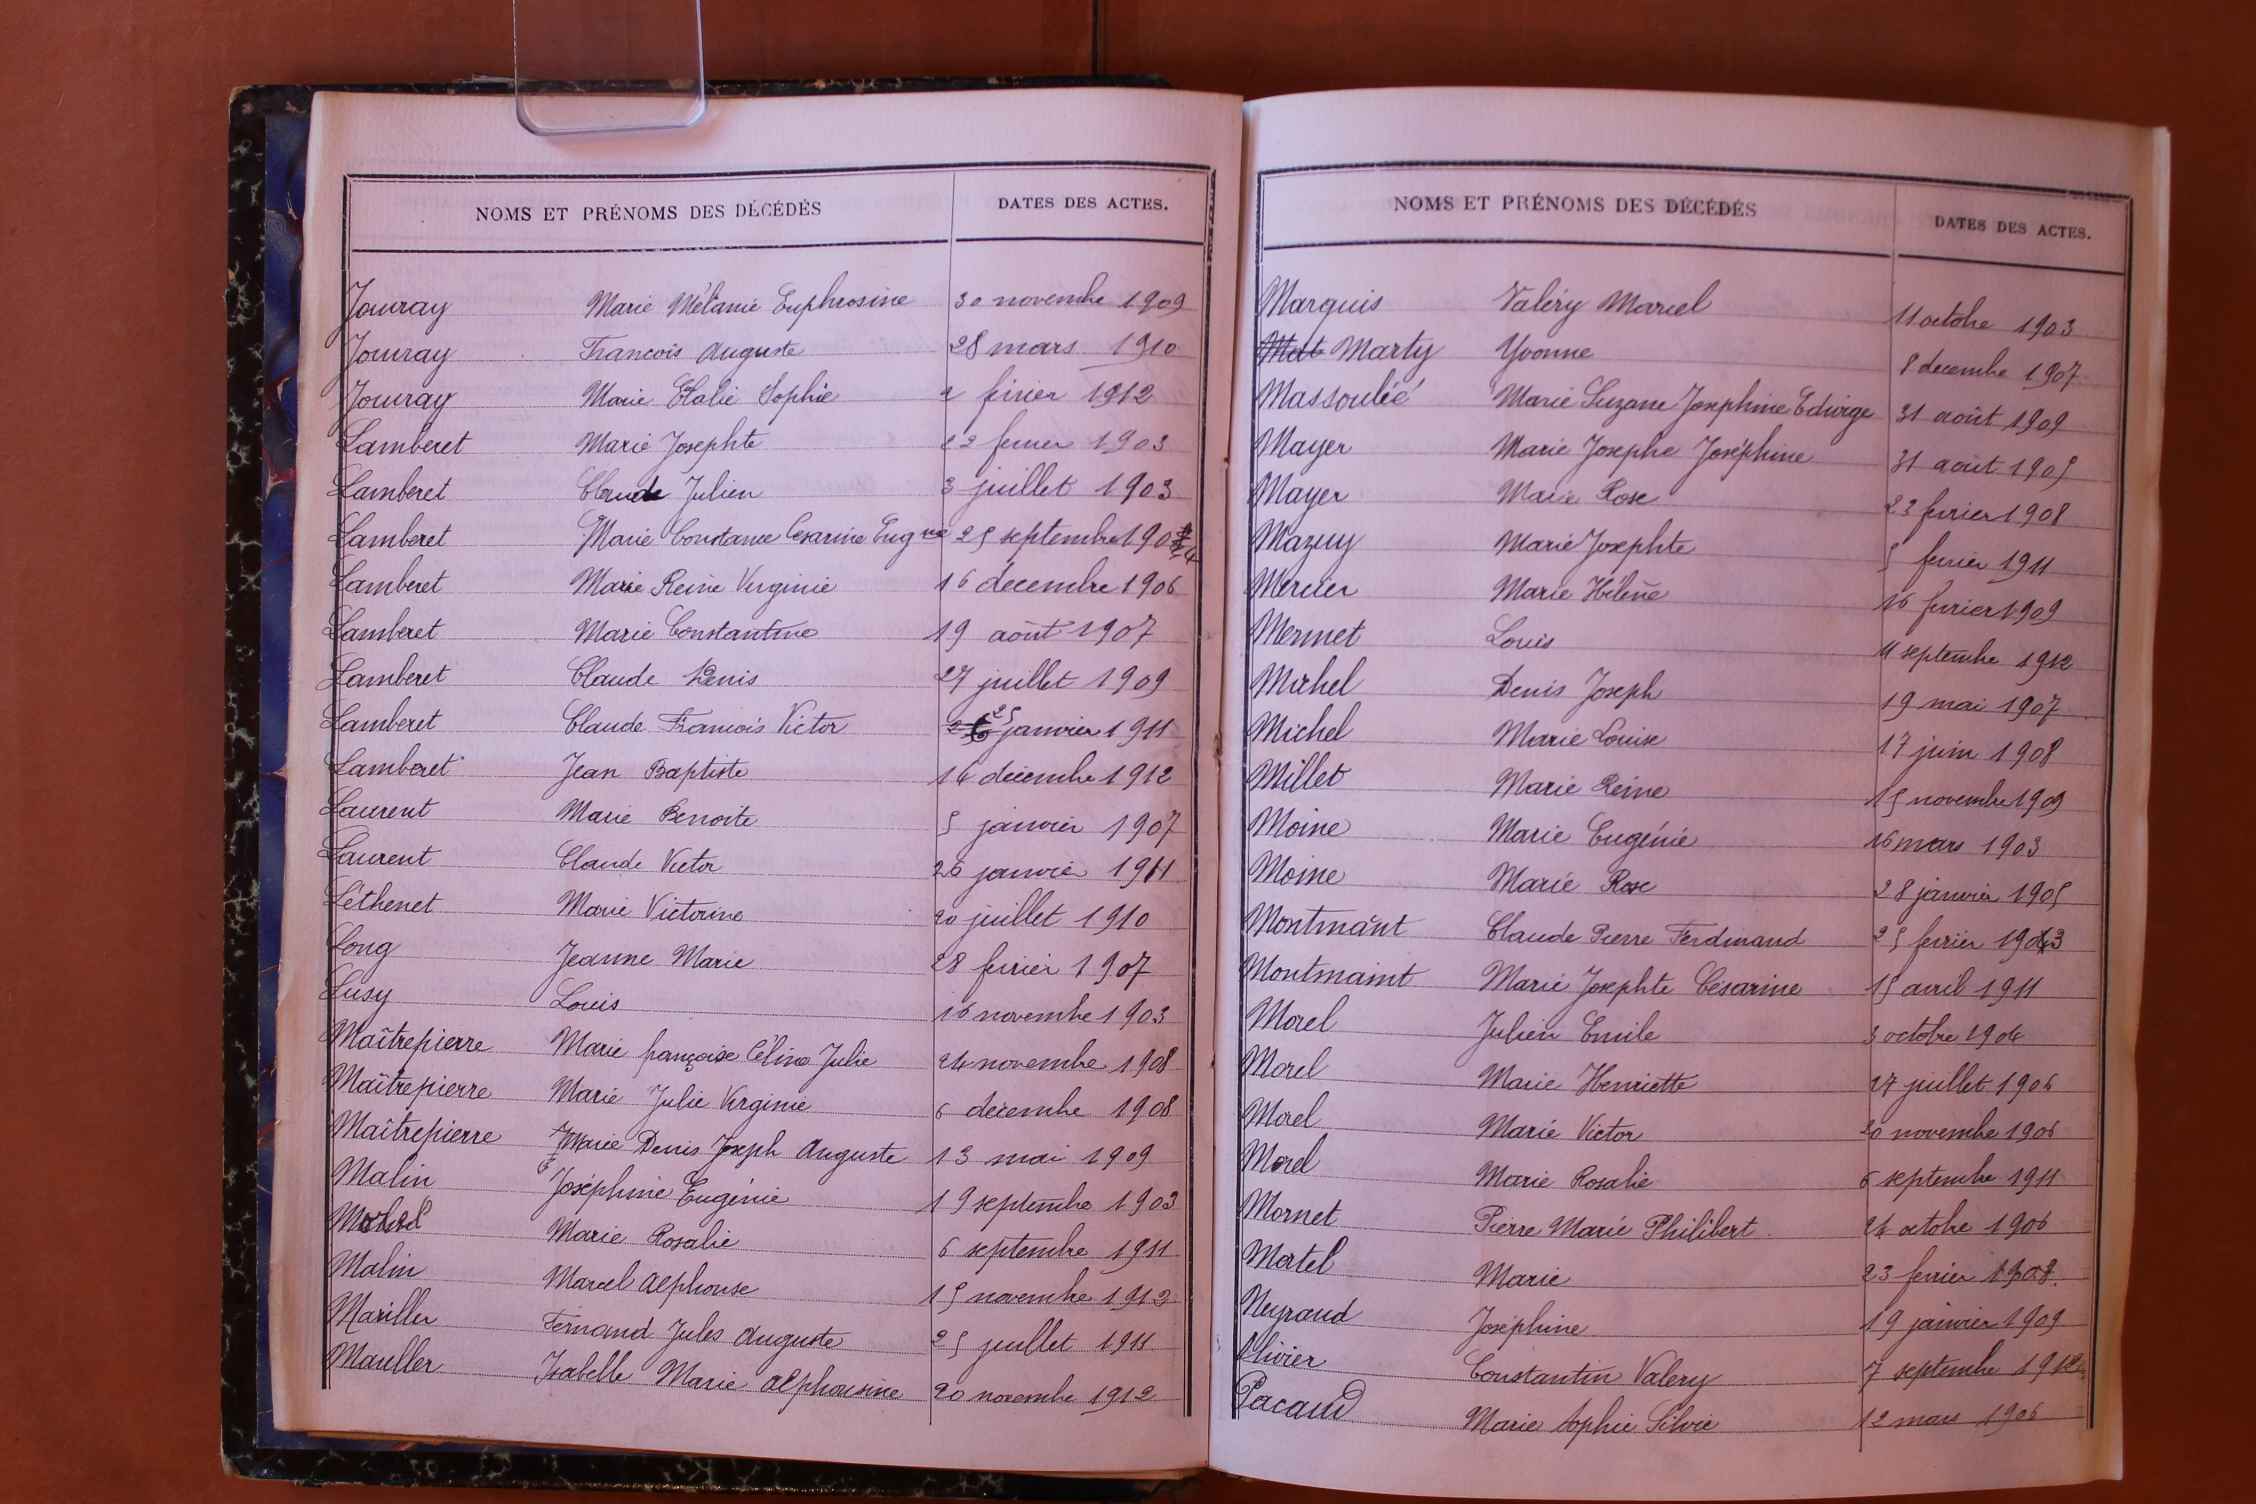 NOMS ET PRÉNOMS DES DÉCÉDÉS DATES DES ACTES.
Jouvray Marie Mélanie Euphrosine 30 novembre 1909
Jouvray Francois Auguste 28 mars 1910
Jouvray Marie Elalie Sophie 2 février 1912
Lamberet Marie Josephte 22 fevrier 1903
Lamberet Claude Julien 3 juillet 1903
Lamberet Marie Constance Cesarine Eugnie 25 septembre 1904
Lamberet Marie Reine Virginie 16 decembre 1906
Lamberet Marie Constantine 19 août 1907
Lamberet Claude Denis 27 juillet 1909
Lamberet Claude Francois Victor 25 janvier 1911
Lamberet Jean Baptiste 16 décembre 1912
Laurent Marie Benoite 5 janvier 1907
Laurent Claude Victor 26 janvier 1911
Léthenet Marie Victorine 20 juillet 1910
Long Jeanne Marie 28 fevrier 1907
Lusy Louis 16 novembre 1903
Maîtrepierre Marie françoise Céline Julie 24 novembre 1908
Maîtrepierre Marie Julie Virginie 6 décembre 1908
Maîtrepierre Marie Denis Joseph Auguste 13 mai 1909
Malin Joséphine Eugénie 19 septembre 1903
Marie Rosalie 6 septembre 1911
Malin Marcel Alphonse 15 novembre 1912
Mariller Fernand Jules Auguste 25 juillet 1911
Mariller Isabelle Marie Alphonsine 20 novembre 1912
NOMS ET PRÉNOMS DES DÉCÉDÉS DATES DES ACTES.
Marquis Valéry Marcel 11 octobre 1903
Marty Yvonne 8 decembre 1907
Massoulié Marie Suzane Josephine Edwige 31 août 1909
Mayer Marie Josephe Joséphine 31 août 1905
Mayer Marie Rose 23 fevrier 1908
Mazuy Marie Josephte 5 fevrier 1911
Mercier Marie Hélène 16 fevrier 1909
Mermet Louis 11 septembre 1912
Michel Denis Joseph 19 mai 1907
Michel Marie Louise 17 juin 1908
Millet Marie Reine 15 novembre 1909
Moine Marie Eugénie 16 mars 1903
Moine Marie Rose 28 janvier 1905
Montmant Claude Pierre Ferdinand 25 fevrier 1903
Montmaint Marie Josephte Césarine 15 avril 1911
Morel Julien Emile 3 octobre 1904
Morel Marie Henriette 27 juillet 1906
Morel Marie Victor 20 novembre 1906
Morel Marie Rosalie 6 septembre 1911
Mornet Pierre Marie Philibert 24 octobre 1906
Mortel Marie 23 fevrier 1908.
Neyraud Joséphine 19 janvier 1909
Olivier Constantin Valery 7 septembre 1912
Pacaud Marie Sophie Silvie 12 mars 1906